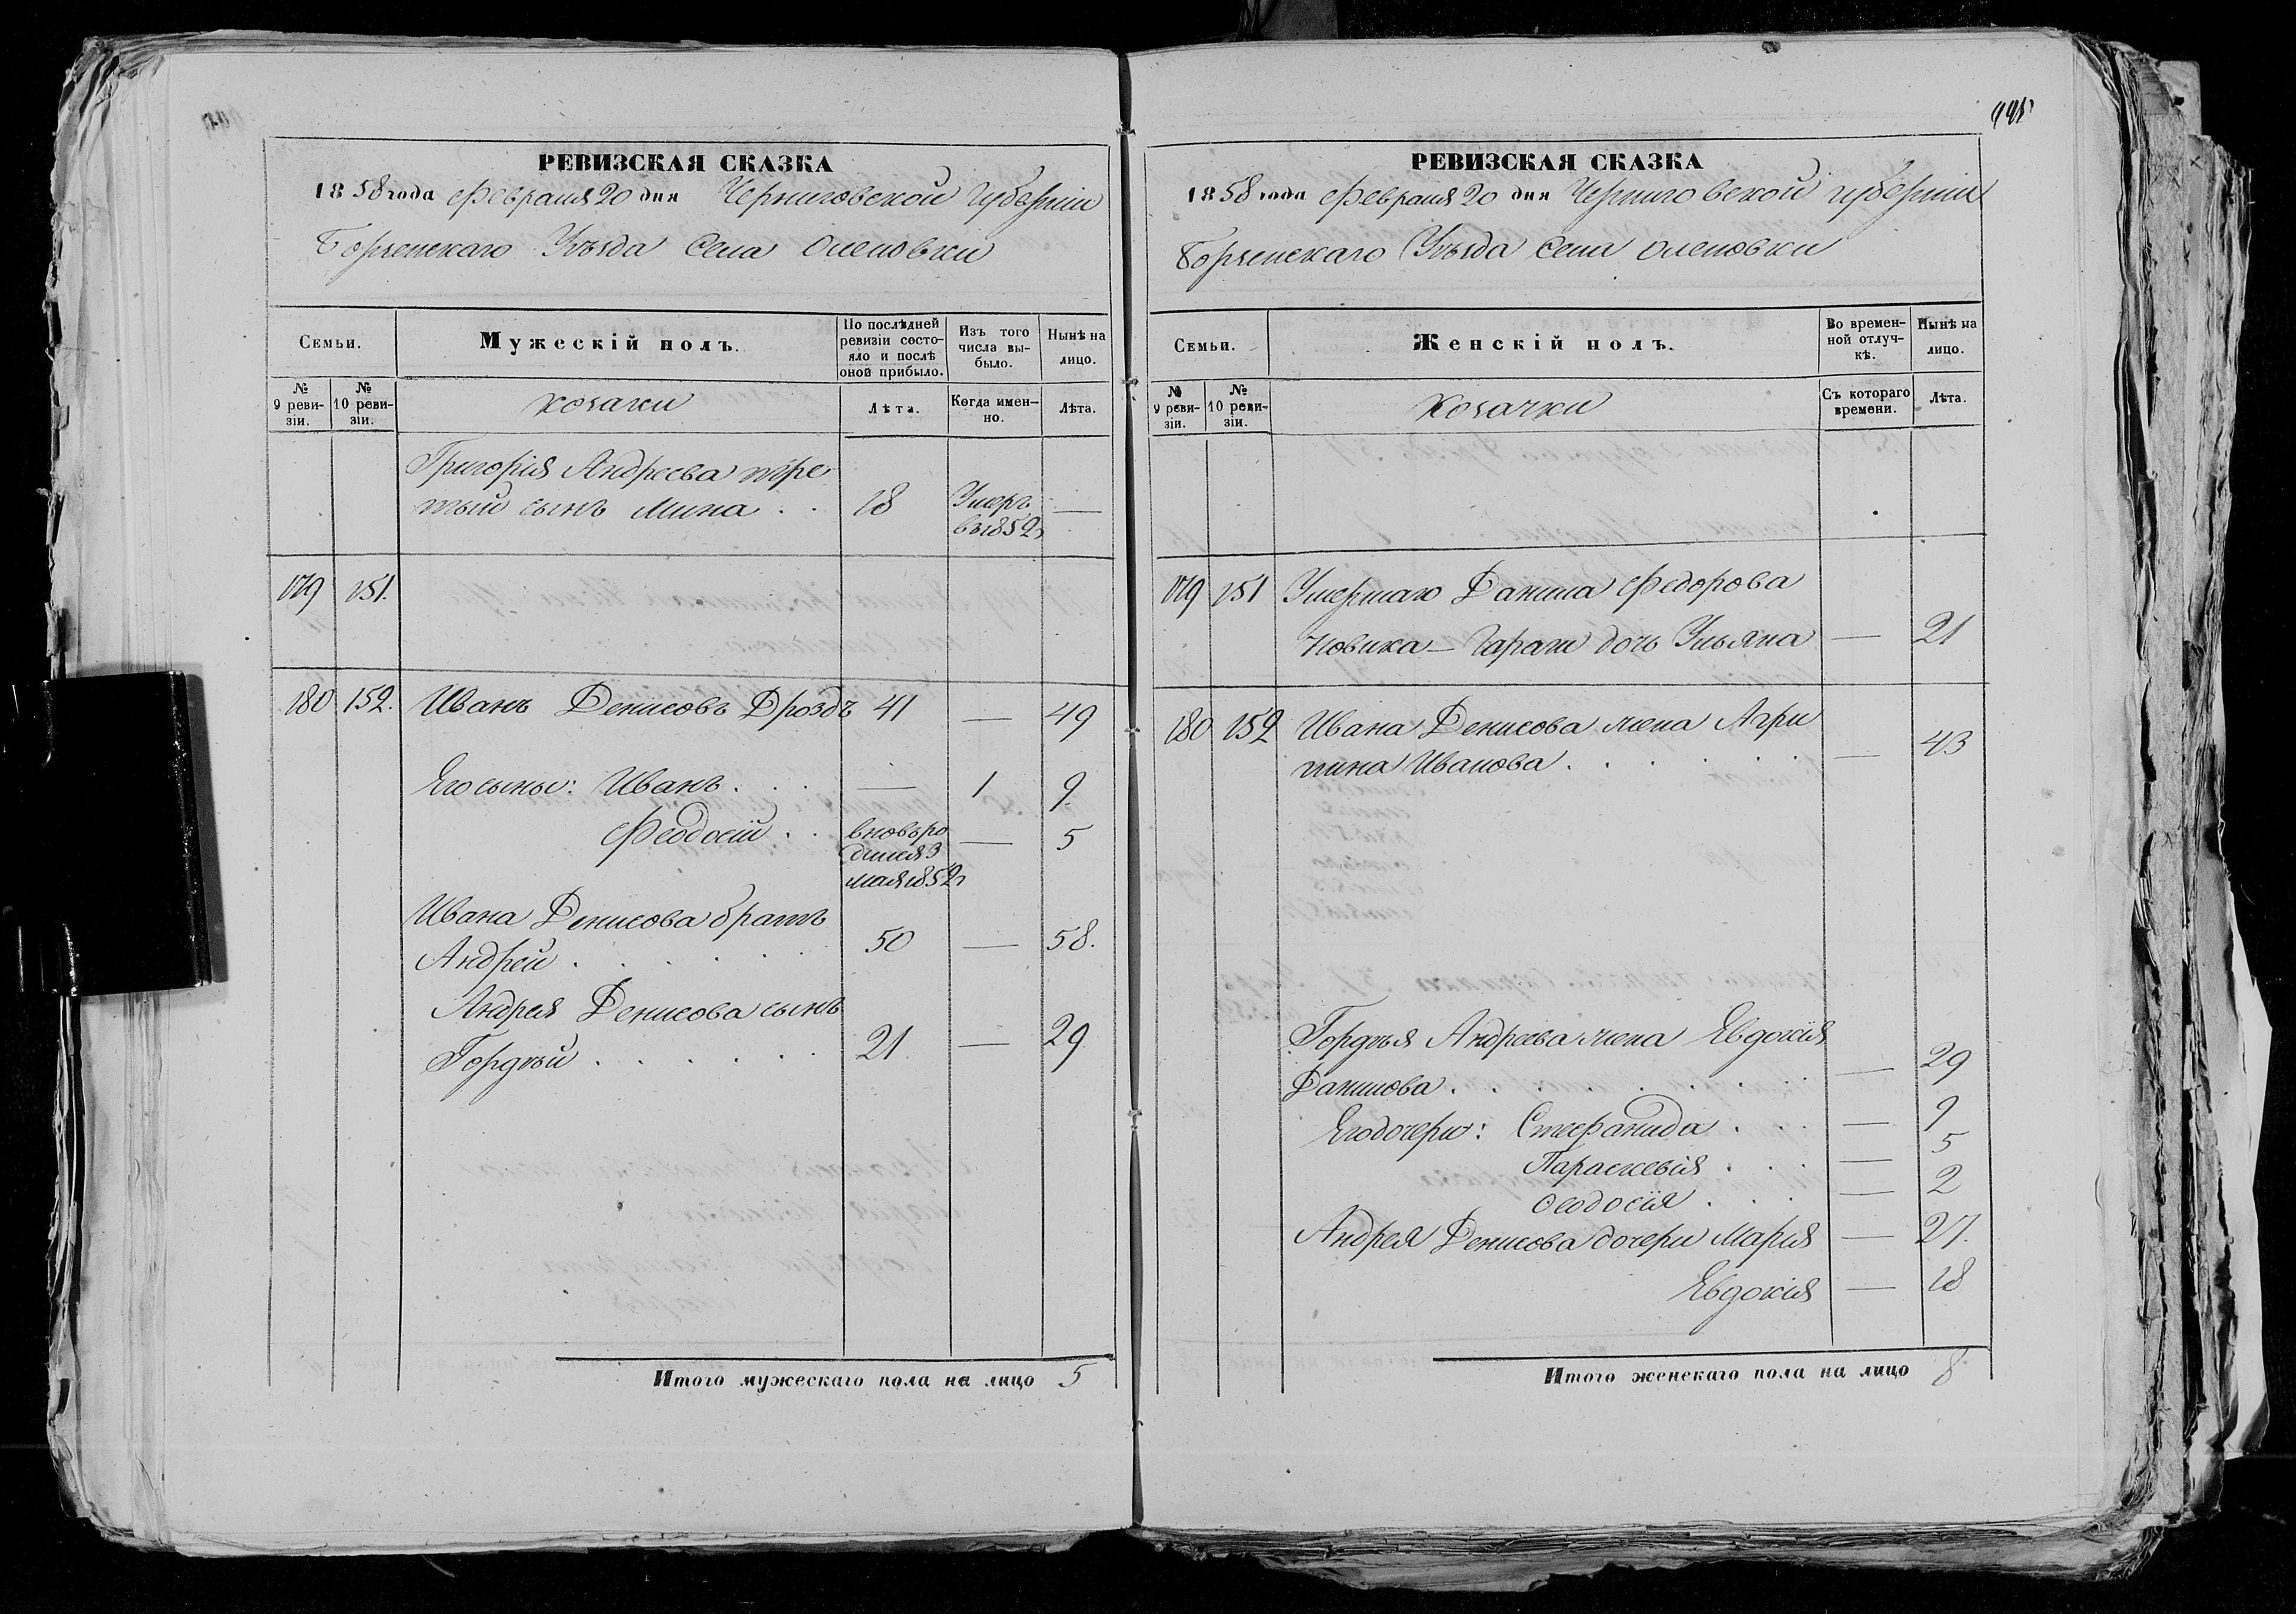 РЕВИЗСКАЯ СКАЗКА
1858 года Февраля 20 дня Черниговской Губернии
Борзенскаго Уѣзда Села Оленовки
Семьи.
Мужескій полъ.
По послѣдней ревизіи состояло и послѣ оной прибыло.
Изъ того числа выбыло.
Нынѣ на лицо.
№ 9 ревизіи.
№ 10 ревизіи.
козаки
Лѣта.
Когда именно.
Лѣта.
Григорія Андреева тре
тый сынъ Мина . . 18 Умеръ —
въ 1852 г
179 151.
180 152. Иванъ Денисовъ Дроздъ 41 — 49
Его сыны: Иванъ . . . — 1 9.
Феодосій . . вновь ро — 5
дился 3
мая 1852 г
Ивана Денисова братъ
Андрей . . . . . . 50 — 58.
Андрея Денисова сынъ
Гордѣй . . . . . . 21 — 29
Итого мужескаго пола на лицо 5
РЕВИЗСКАЯ СКАЗКА
1858 года Февраля 20 дня Черниговской Губернии
Борзенскаго Уѣзда Села Оленовки
Семьи.
Женскій полъ.
Во временной отлучкѣ.
Нынѣ на лицо.
№ 9 ревизіи.
№ 10 ревизіи.
Козачки
Съ котораго времени.
Лѣта.
179 151 Умершаго Данила Федорова
Новика — дочь Ульяна — 21
180 152 Ивана Денисова жена Агри
пина Иванова . . . . . . — 43
Гордѣя Андреева жена Евдокія
Данилова . . . . . . . . — 29
Его дочери: Стефанида . . . — 9
Параскевія . . . — 5
Феодосія . . . — 2
Андрея Денисова дочери Марія — 27.
Евдокія — 18
Итого женскаго пола на лицо 8